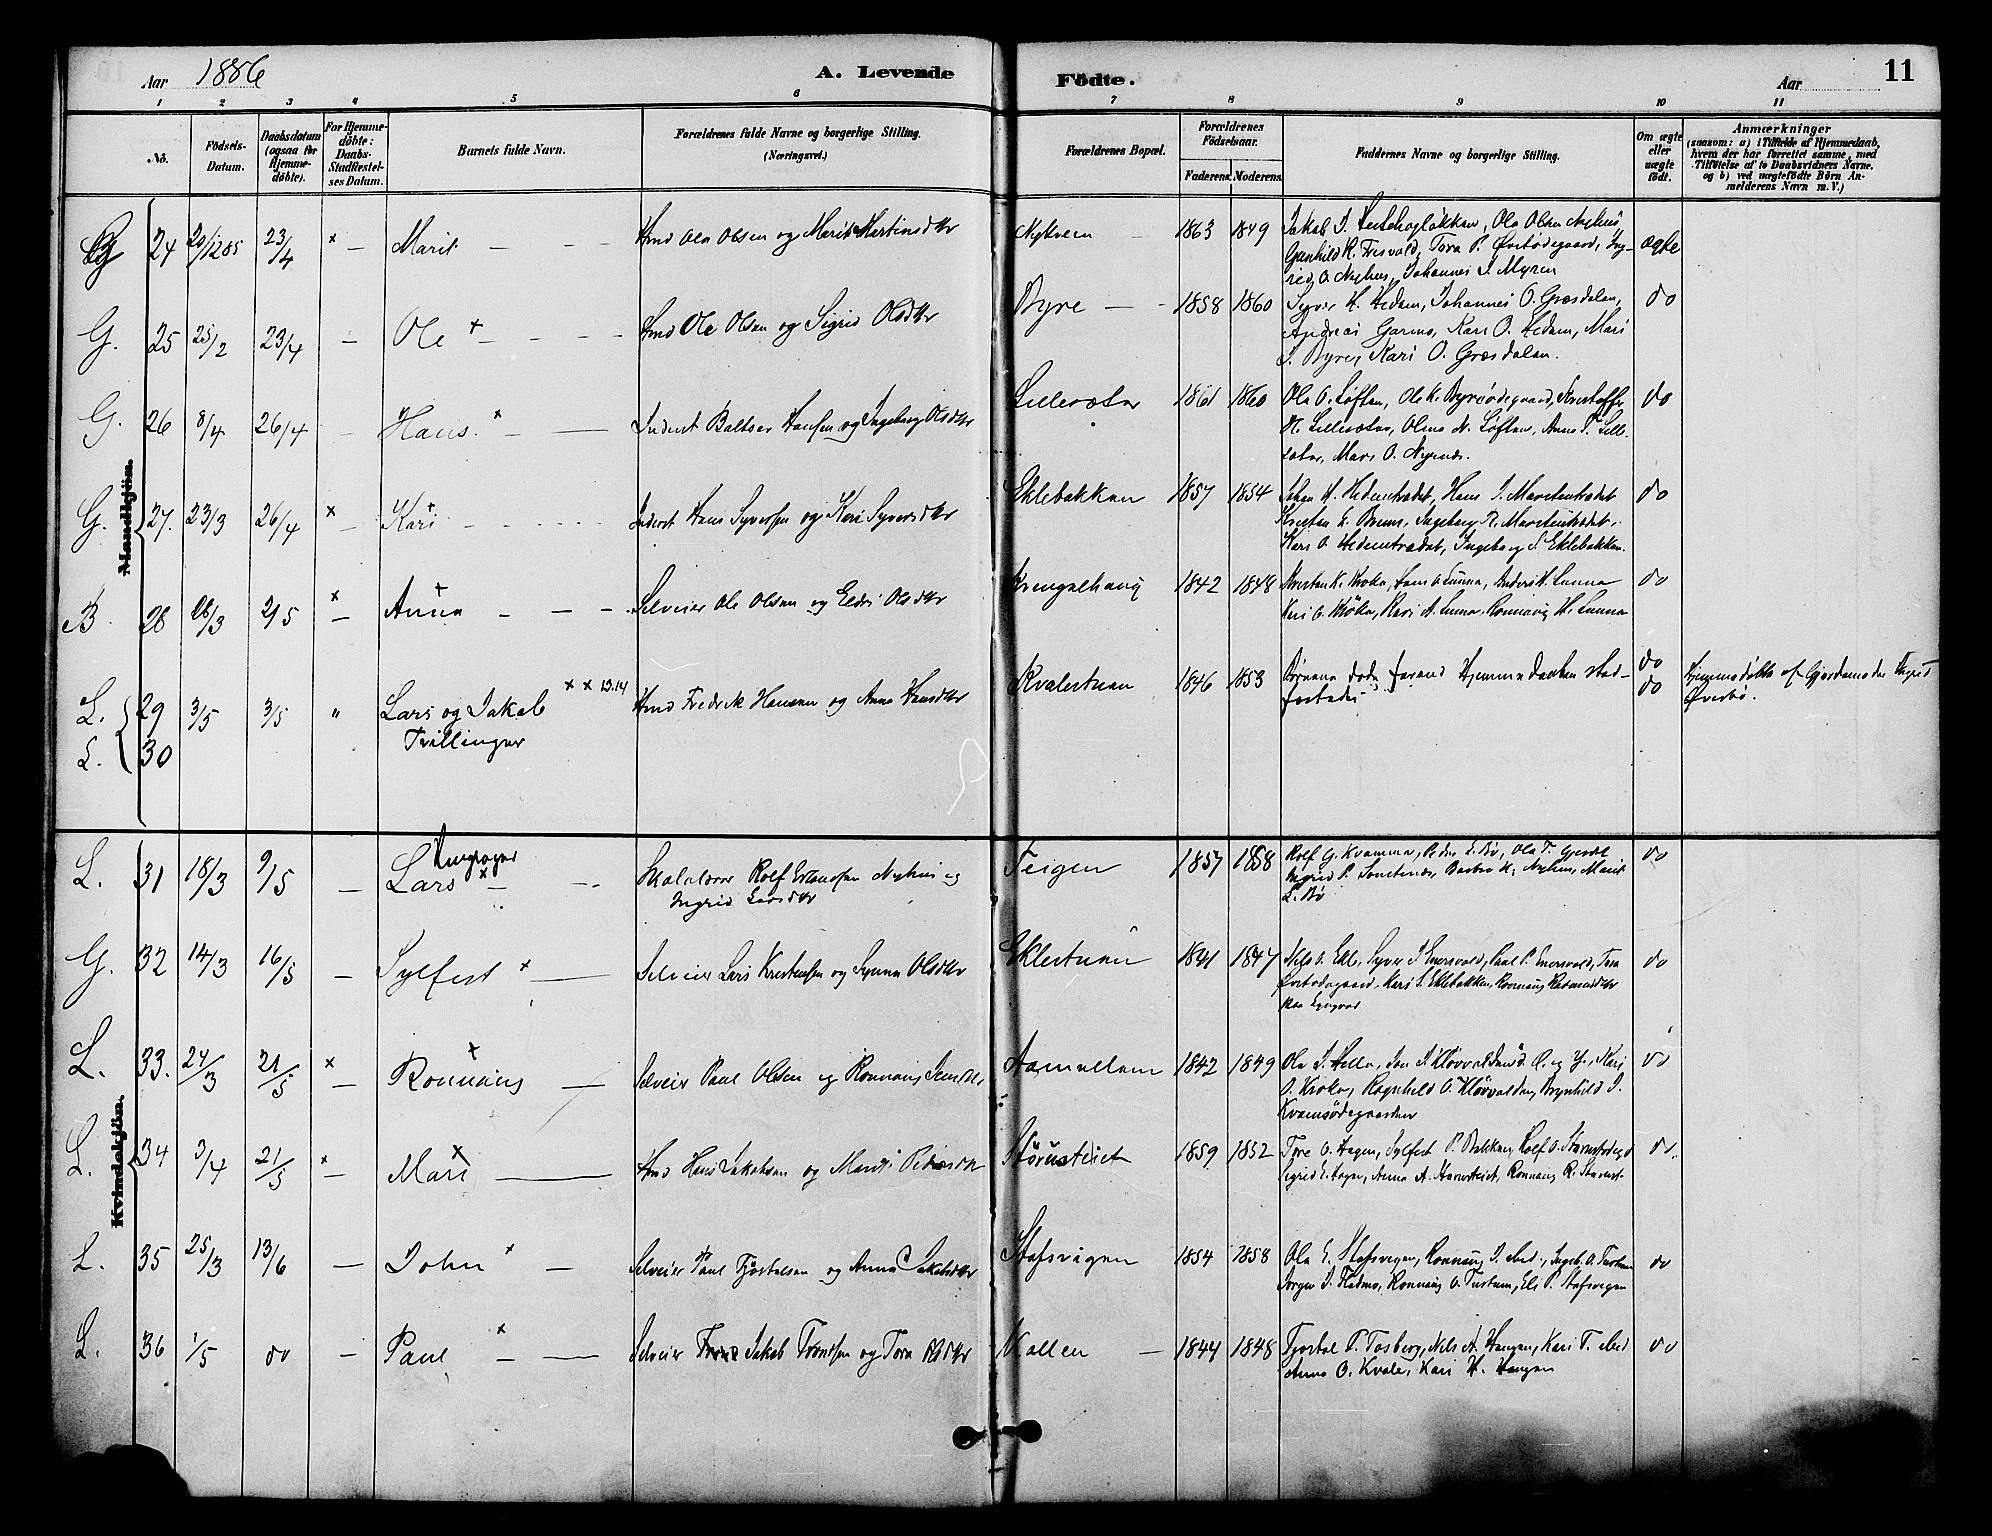 Aar 1886 A. Levende Födte. Aar 11
1 2 3 4 5 6 7 8 9 10 11
No. Födsels-Datum. Daabsdatum (ogsaa for Hjemme-döbte). For Hjemme-döbte: Daabs-Stadfæstel-ses Datum. Barnets fulde Navn. Forældrenes fulde Navne og borgerlige Stilling. (Næringsvei.) Forældrenes Bopæl. Forældrenes Födselsaar. Faderens. Moderens. Faddernes Navne og borgerlige Stilling. Om ægte eller uægte födt. Anmærkninger (saasom: a) i Tilfælde af Hjemmedaab, hvem der har forrettet samme, med Tilföielse af to Daabsvidners Navne. og b) ved uægtefödte Börn An-melderens Navn m. V.)
Mandkjön.
24 20/12 85 23/4 x — Marit — — — Ola Olsen og Marit Martinsdtr Nykveen — 1863 1849 Jakob J. Ola Olsen Nyhus,
Gunhild K. Frisvold, Tora P. Øvstodegaard, Ing-
rid O. Nyhus, Johannes J. Myren ægte
G. 25 25/2 23/4 — Ole x — — — Ole Olsen og Sigrid Olsdtr Byre — — 1858 1860 Syver H. Hedam, Johannes O. Græsdalen, do
Andreas Garmo, Kari O. Hedam, Mari
J. Byre, Kari O. Græsdalen.
G. 26 8/4 26/4 — Hans. x — — Inderst Baltser Hansen og Ingeborg Olsdtr Lillesæter 1861 1860 Ola O. Løften, Ole K. Byreødegaard, Kristoffer do
H. Lillesæter, Olina N. Løften, Anna T. Lille-
sæter, Mari O. Nyenæs.
G. 27. 23/3 26/4 x — Kari x — — Inderst Hans Syversen og Kari Syversdtr Eklebakken 1857 1854 Johan H. Hedemtrædet, Hans J. Marstentrædet do
Kristen Bruun, Ingeborg R. Marstentrædet,
Kari O. Hedemtrædet, Ingeborg S. Eklebakken.
B 28 28/3 2/5 x — Anna x — — — Selveier Ole Olsen og Eldri Olsdtr Kringelhaug 1842 1848 Kristen K. Kroke, Hans O. Sunna, Anders H. Sunna do
Kari O. Kroke, Kari A. Sunna, Ronnaug H. Sunna
L. 29 3/5 3/5 " Lars og Jakob x x 13.14 Fredrik Hansen og Anna Hansdtr Kvalestuen 1846 1853 Børnene døde førend Hjemmedaaben stad- do
fæstedes do Hjemmedøbte af Gjordemoder Ingrid
Øverbø.
L. 30 Tvillinger
Kvindekjön.
L. 31 18/3 9/5 — Lars x — — Skolelærer Rolf Erlandsen Nyhus og Teigen 1857 1858 Rolf G. Kvamme, Peder L. Bø, Ola T. Gjerdet do
Ingrid Larsdtr Ingrid P. Barbro K. Nyhus, Marit
L. Bø
G. 32 14/3 16/5 — Sylfest x — Selveier Lars Kristensen og Synnø Olsdtr Eklestuen 1841 1847 Nils O. Ekle, Syver J. Enersvold, Paul P. Enersvold, Tora do
Øvstodegaard, Kari S. Eklebakken, Ronnaug Rasmusdtr
L. 33. 24/3 21/5 x — Ronnaug x — Selveier Paul Olsen og Ronnaug Jensdtr Aamellem 1842 1849 Ola J. Hella, Jon J. Kløvvolden, Kari do
O. Kroke, Ragnhild O. Kløvvolden, Brynhild J.
Kvamsødegaarden
L. 34 3/4 21/5 x — Mari x — Hans Jakobsen og Marit Pedersdtr Størusteiet 1859 1852 Tore O. Hagen, Sylfest P. Bakken, Rolf O. do.
Sigrid E. Hagen, Anna A. Ronnaug R.
L. 35 25/3 13/6 — John x — Selveier Paul Fjøstelsen og Anna Jakobsdtr Stafsvigen 1854 1858 Ola E. Stafsvigen, Ronnaug J. ibid., Ingeb. O. Tustum do
Jørgen J. Hatmo, Ronnaug O. Tustum, Eli P. Stafsvigen
L. 36 1/5 do — Paul x — — Selveier Jakob Trondsen og Tora Olsdtr Kollen — 1844 1848 Fjøstel P. Tosberg, Nils A. Haugen, Kari T. ibid do
Anna O. Kvale, Kari H. Haugen